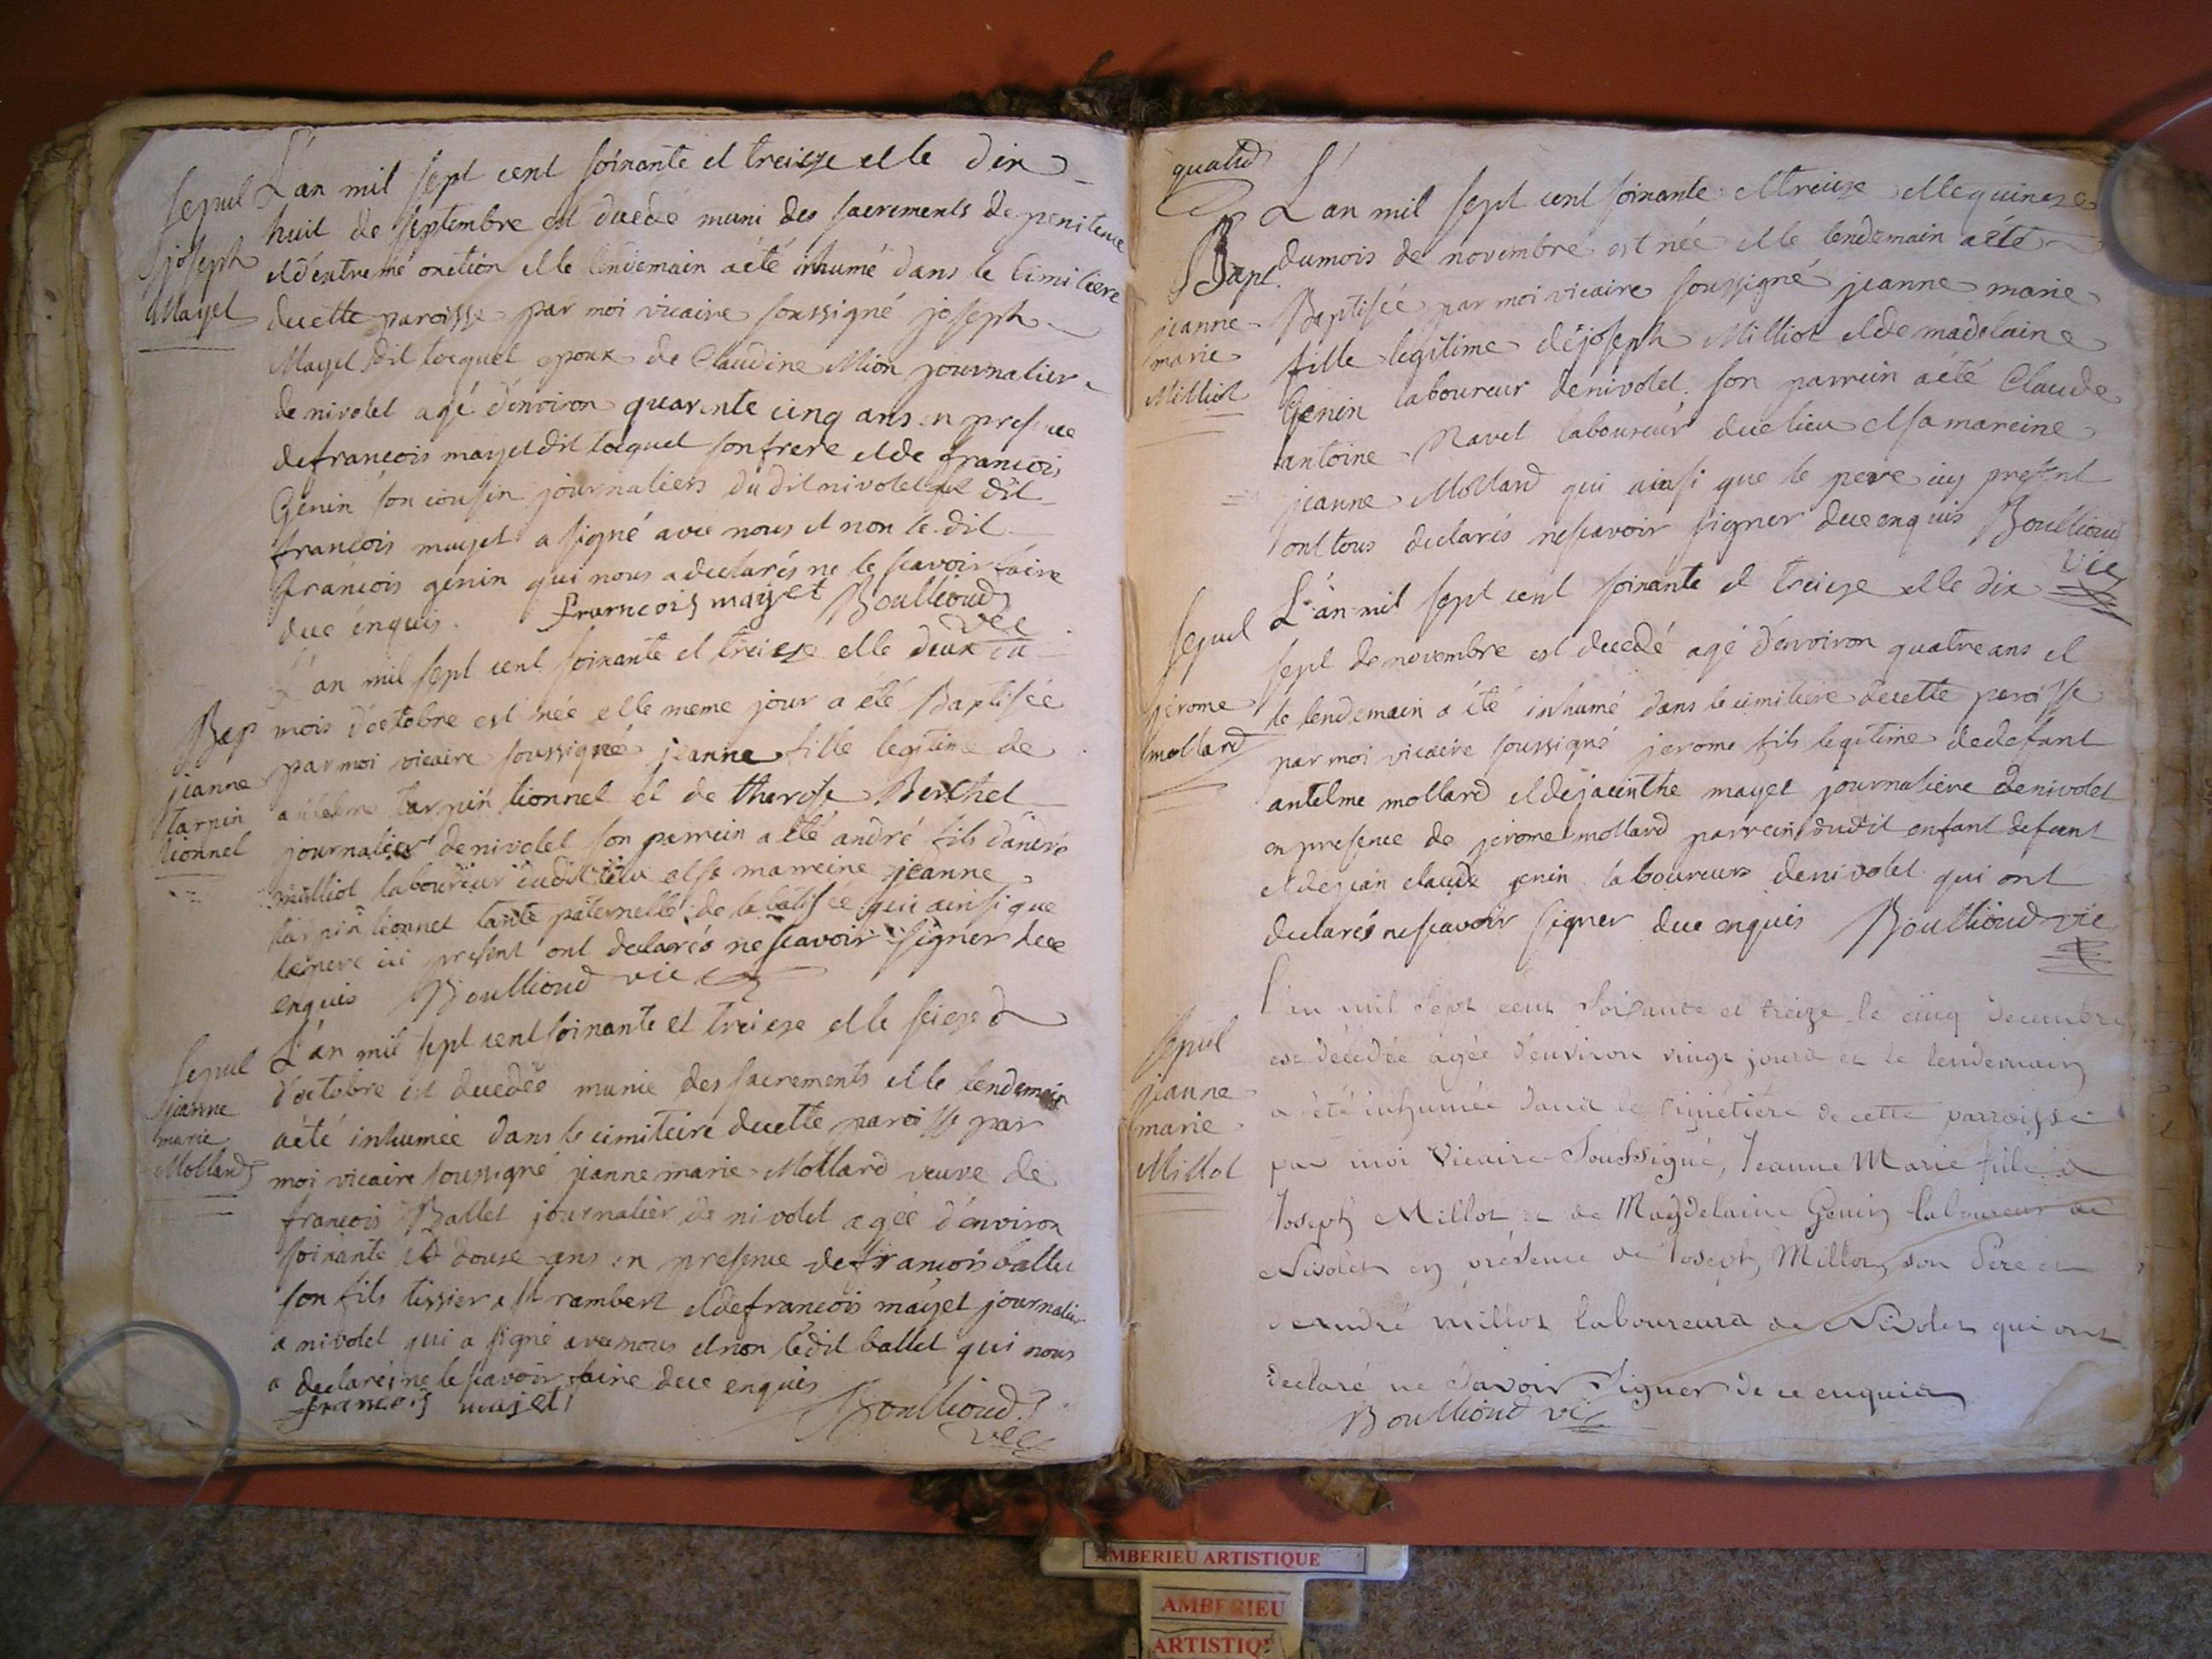 Sepul
joseph
Mayet
L'an mil sept cent soixante et treize et le dix
huit de septembre est decedé muni des sacrements de penitence
et d'extreme onction et le lendemain a été inhumé dans le cimitiere
de cette paroisse par moi vicaire soussigné joseph
Mayet dit tocquet epoux de Claudine Mion journalier
de nivolet agé d'environ quarente cinq ans en presence
de francois mayet dit tocquet son frere et de francois
Genin son cousin journaliers du dit nivolet dit
francois mayet a signé avec nous et non le dit
francois genin qui nous a declarés ne le scavoir faire
de ce enquis. francois mayet Boullioud
vic
Bap
jeanne
tarpin
lionnel
L'an mil sept cent soixante et treize et le deux du
mois d'octobre est née et le meme jour a été Baptisée
par moi vicaire soussigné jeanne fille legitime de
antelme tarpin lionnel et de therese Berthet
journalier de nivolet son parrein a été andré fils d'andré
milliot laboureur dudit lieu et sa marreine jeanne
tarpin lionnel tante paternelle de la batisée qui ainsi que
le pere ici present ont declarés ne scavoir signer de ce
enquis Boullioud vic
Sepul
jeanne
marie
Mollard
L'an mil sept cent soixante et treize et le seize
d'octobre est decedée munie des sacrements et le lendemain
a été inhumée dans le cimiteire de cette paroisse par
moi vicaire soussigné jeanne marie Mollard veuve de
francois Ballet journalier de nivolet agée d'environ
soixante et douze ans en presence de francois ballet
son fils tissier a st rambert et de francois mayet journalier
a nivolet qui a signé avec nous et non le dit ballet qui nous
a declarés ne le scavoir faire de ce enquis
francois mayet Boullioud
vic
quatre
Bapt.
jeanne
marie
Milliot
L'an mil sept cent soixante et treize et le quinze
du mois de novembre est née et le lendemain a été
Baptisée par moi vicaire soussigné jeanne marie
fille legitime de joseph Milliot et de madelaine
Genin laboureur de nivolet. son parrein a été Claude
antoine Navet laboureur de ce lieu et sa mareine
jeanne Mollard qui ainsi que le pere icy present
ont tous declarés ne scavoir signer de ce enquis Boullioud
vic
Sepul
jerome
mollard
L'an mil sept cent soixante et treize et le dix
sept de novembre est decedé agé d'environ quatre ans et
le lendemain a été inhumé dans le cimitiere de cette paroisse
par moi vicaire soussigné jerome fils legitime de defunt
antelme mollard et de jacinthe mayet journaliere de nivolet
en presence de jerome mollard parrein dudit enfant defunt
et de jean claude genin laboureurs de nivolet qui ont
declarés ne scavoir signer de ce enquis Boullioud vic
Sepul
jeanne
marie
Millot
L'an mil sept cent soixante et treize le cinq decembre
est décédée âgée d'environ vingt jours et le lendemain
a été inhumée dans le cimetiere de cette parroisse
par moi Vicaire Soussigné, Jeanne Marie fille de
Joseph Millot et de Magdelaine Genin laboureur de
Nivolet en présence de Joseph Millot son Pere et
de andré millot laboureurs de Nivolet qui ont
declaré ne savoir signer de ce enquis
Boullioud vic
AMBERIEU ARTISTIQUE
AMBERIEU
ARTISTIQ